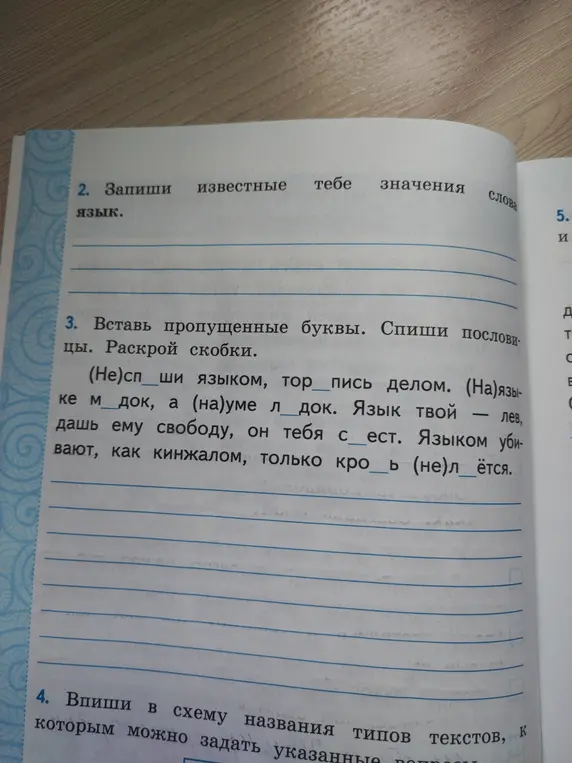 2. Запиши известные тебе значения слова
язык.
3. Вставь пропущенные буквы. Спиши послови-
цы. Раскрой скобки.
(Не)сп_ши языком, тор_пись делом. (На)язы-
ке м_док, а (на)уме л_док. Язык твой — лев,
дашь ему свободу, он тебя с_ест. Языком уби-
вают, как кинжалом, только кро_ь (не)л_ётся.
4. Впиши в схему названия типов текстов, к
которым можно задать указанные
5.
и